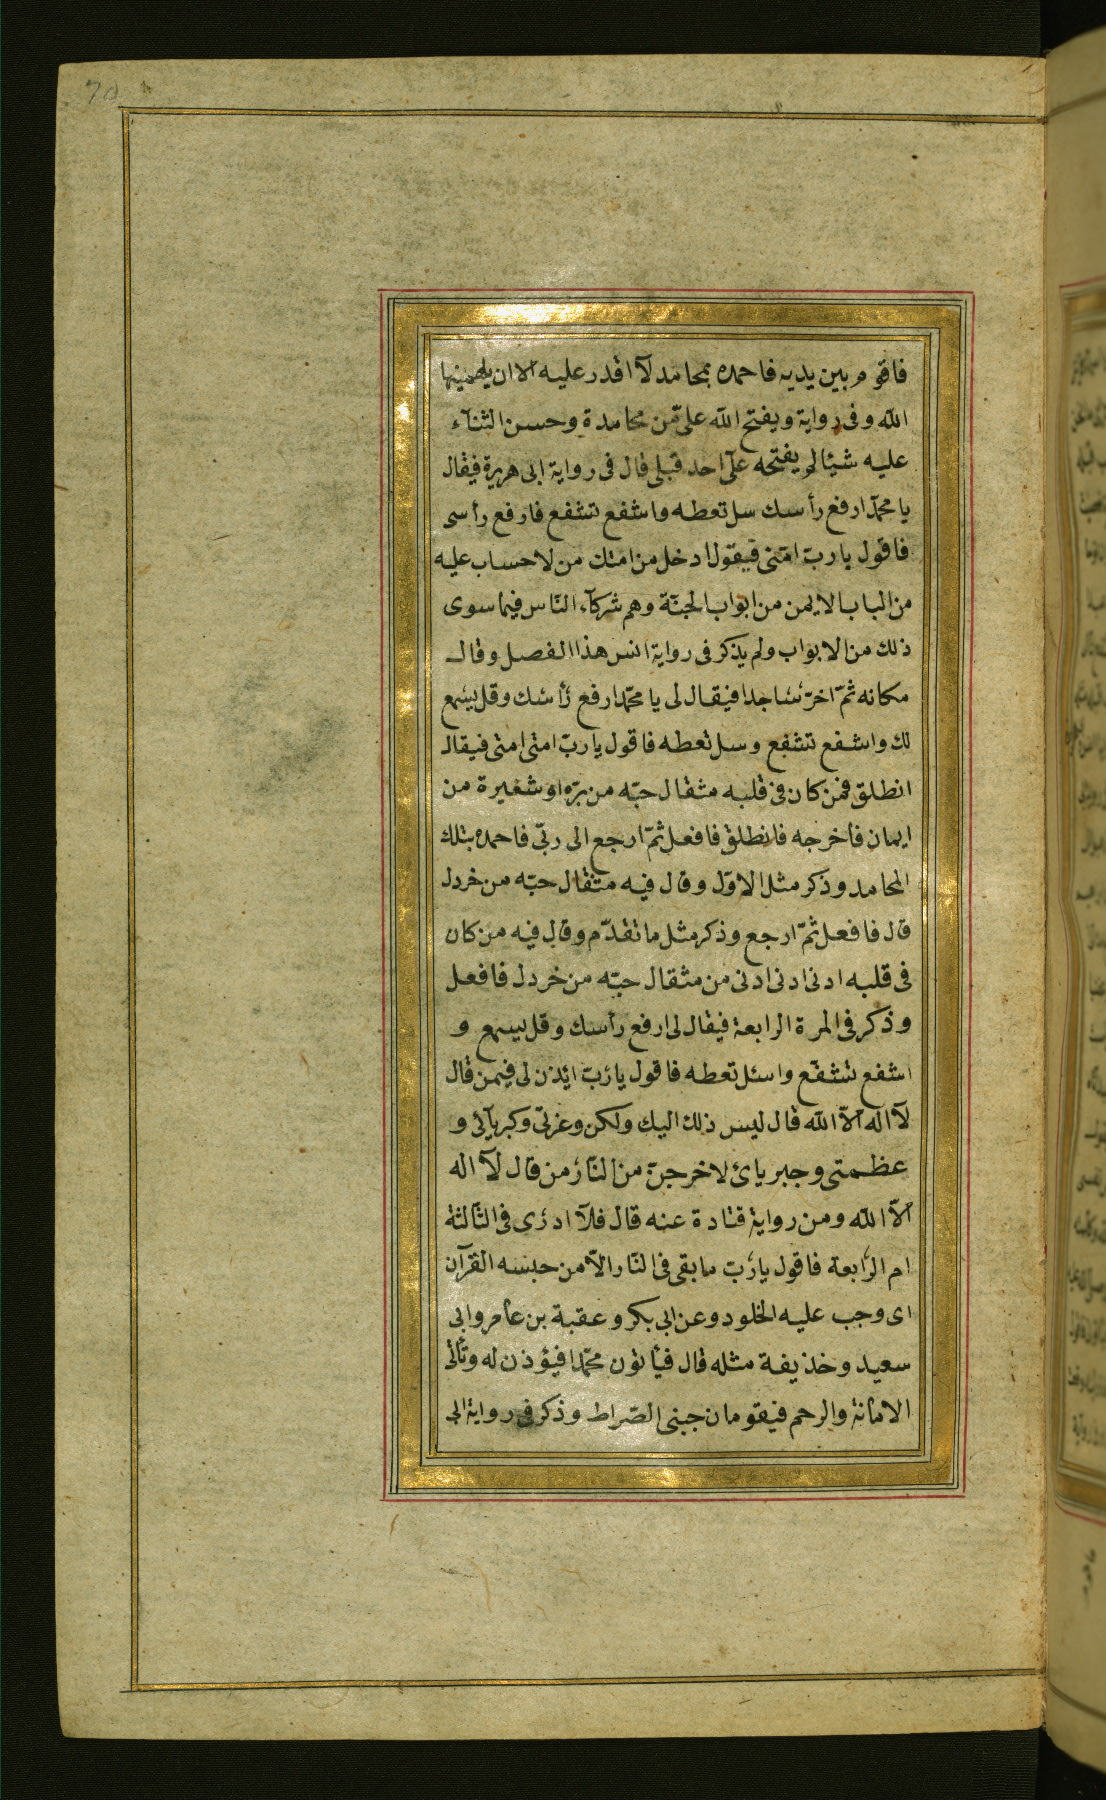 70
فاقوم بين يديه فاحمده بمحامد لآ اقدر عليه الا ان يلهمنيها
الله وفى رواية ويفتح الله علىّ من محامدة وحسن الثناء
عليه شيئا لم يفتحه على احد قبلى قال فى رواية ابى هريرة فيقال
يا محمّد ارفع رأسك سل تعطه واشفع تشفع فارفع رأسى
فاقول يا ربّ امّتى فيقول ادخل من امتك من لا حساب عليه
من الباب الايمن من ابواب الجنّة وهم شركآء النّاس فيما سوى
ذلك من الابواب ولم يذكر فى رواية انس هذا الفصل وقال
مكانه ثمّ اخرّ ساجدا فيقال لى يا محمّد ارفع رأسك وقل يسمع
لك واشفع تشفع وسل تعطه فاقول يا ربّ امتى امتى فيقال
انطلق فمن كان فى قلبه مثقال حبّه من برّه او شعيرة من
ايمان فأخرجه فانطلق فافعل ثمّ ارجع الى ربّى فاحمده بتلك
المحامد وذكر مثل الاوّل وقال فيه مثقال حبّه من خردل
قال فافعل ثمّ ارجع وذكر مثل ما تقدّم وقال فيه من كان
فى قلبه ادنى ادنى ادنى من مثقال حبّه من خردل فافعل
وذكر فى المرة الرابعة فيقال لى ارفع رأسك وقل يسمع و
اشفع تشفّع واسئل تعطه فاقول يا ربّ ائذن لى فيمن قال
لآ اله الاّ الله قال ليس ذلك اليك ولكن وعزتى وكبريآئى و
عظمتى وجبريائ لاخرجنّ من النّار من قال لآ اله
الاّ الله ومن رواية قتادة عنه قال فلآ ادرى فى الثّالثة
ام الرّابعة فاقول يا ربّ ما بقى فى النّار الاّ من حبسه القرآن
اى وجب عليه الخلود وعن ابى بكر وعقبة بن عامر وابى
سعيد وحذيفة مثله قال فيأتون محمّدا فيؤذن له وتأتى
الامانة والرحم فيقومان جنبى الصّراط وذكر فى رواية ابى